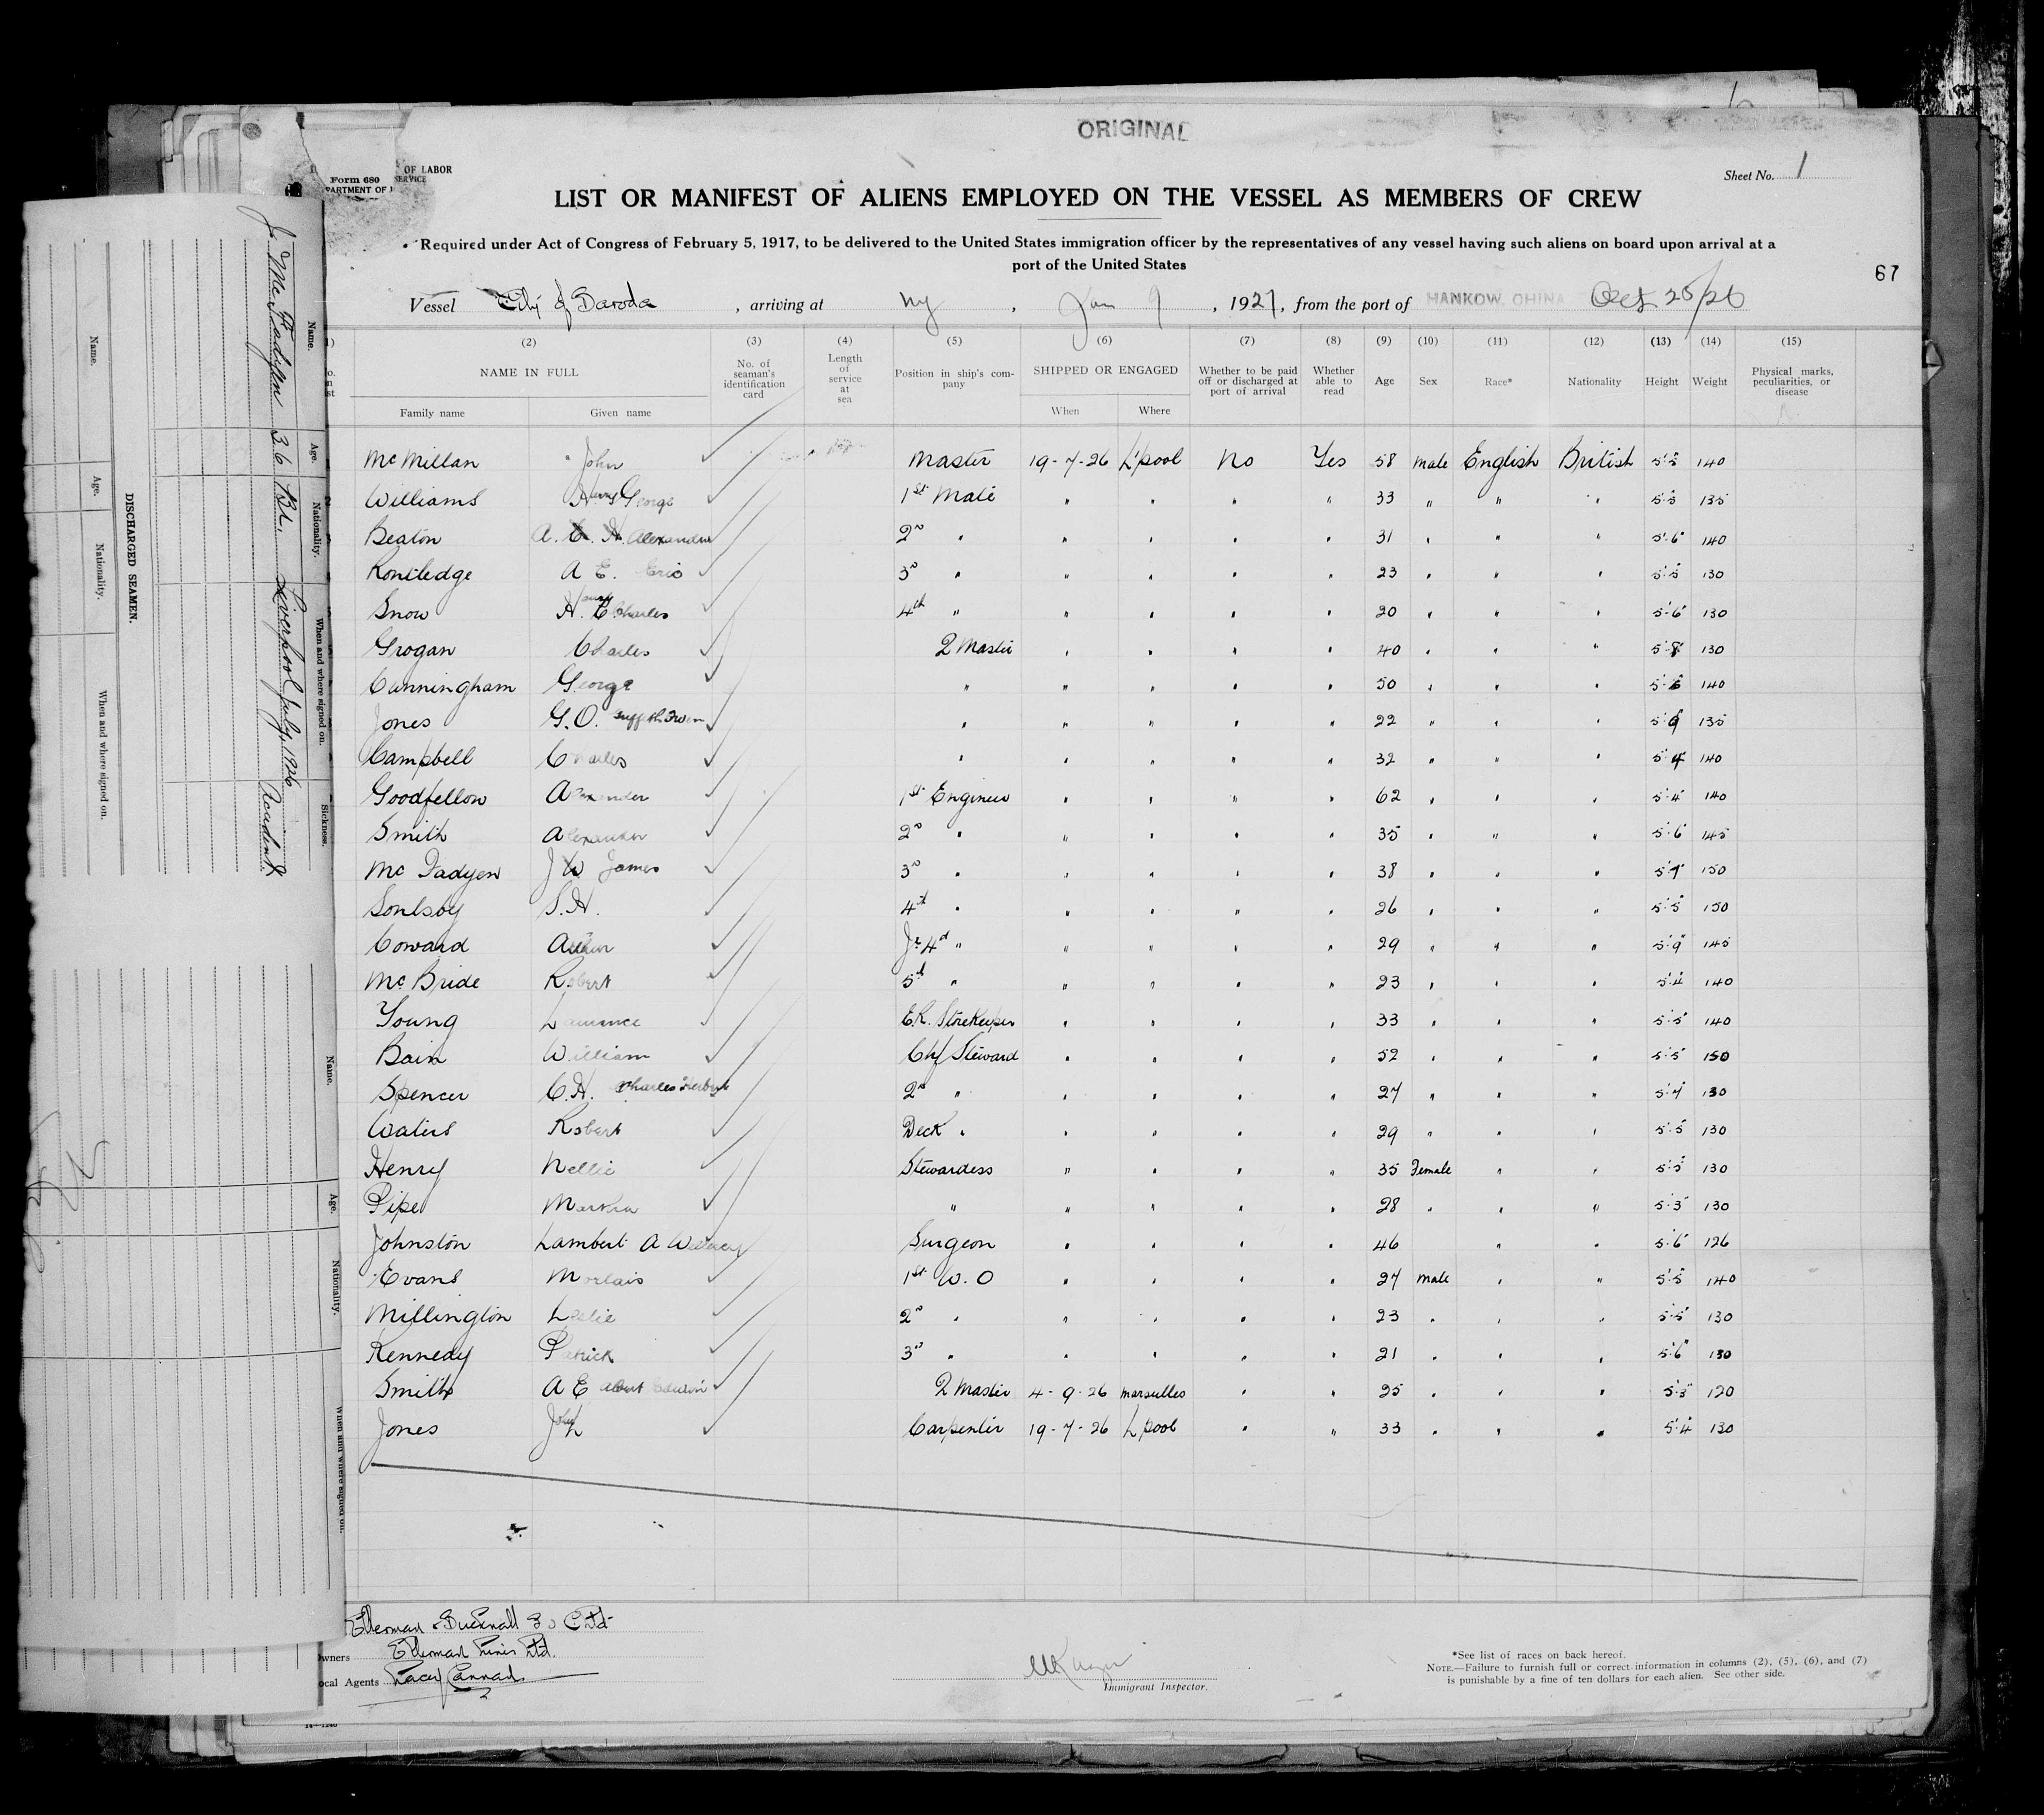 ORIGINAL
Form 680
OF LABOR
SERVICE
Sheet No. 1
LIST OR MANIFEST OF ALIENS EMPLOYED ON THE VESSEL AS MEMBERS OF CREW
Required under Act of Congress of February 5, 1917, to be delivered to the United States immigration officer by the representatives of any vessel having such aliens on board upon arrival at a
port of the United States
67
Vessel City of Baroda, arriving at Ny, Jan 9, 1927, from the port of HANKOW, CHINA Oct 25/26
(2) (3) (4) (5) (6) (7) (8) (9) (10) (11) (12) (13) (14) (15)
NAME IN FULL No. of seaman's identification card Length of service at sea Position in ship's company SHIPPED OR ENGAGED Whether to be paid off or discharged at port of arrival Whether able to read Age Sex Race* Nationality Height Weight Physical marks, peculiarities, or disease
Family name Given name When Where
McMillan John Master 19-7-26 L'pool No Yes 58 Male English British 5'5" 140
Williams Harry George 1st Mate " " " " 33 " " " 5'5" 135
Beaton A. C. H. Alexander 2nd " " " " " 31 " " " 5'6" 140
Routledge A E. Eric 3d " " " " " 23 " " " 5'5" 130
Snow H. C. Charles 4th " " " " " 20 " " " 5'6" 130
Grogan Charles Q Master " " " " 40 " " " 5'8" 130
Cunningham George " " " " " 50 " " " 5'6" 140
Jones G. O. Griffith Owen " " " " " 22 " " " 5'9" 135
Campbell Charles " " " " " 32 " " " 5'4" 140
Goodfellow Alexander 1st Engineer " " " " 62 " " " 5'4" 140
Smith Alexander 2nd " " " " " 35 " " " 5'6" 145
McFadyen J W James 3d " " " " " 38 " " " 5'7" 150
Soulsby S. H. 4th " " " " " 26 " " " 5'5" 150
Coward Arthur Jr 4th " " " " " 29 " " " 5'9" 145
McBride Robert 5th " " " " " 23 " " " 5'4" 140
Young Laurence E.R. Storekeeper " " " " 33 " " " 5'5" 140
Bain William Chf Steward " " " " 52 " " " 5'5" 150
Spencer C. H. Charles Herbert 2nd " " " " " 27 " " " 5'7" 130
Waters Robert Deck " " " " " 29 " " " 5'5" 130
Henry Nellie Stewardess " " " " 35 Female " " 5'5" 130
Pipe Martha " " " " " 28 " " " 5'3" 130
Johnston Lambert A Surgeon " " " " 46 " " 5'6" 126
Evans Morlais 1st W. O " " " " 27 Male " " 5'5" 140
Millington Leslie 2nd " " " " " 23 " " " 5'5" 130
Kennedy Patrick 3d " " " " " 21 " " " 5'6" 130
Smith A E Albert Edwin Q Master 4-9-26 Marseilles " " 25 " " " 5'3" 120
Jones John Carpenter 19-7-26 L'pool " " 33 " " " 5'4 130
Ellerman & Bucknall Co Ltd
Owners Ellerman Lines Ltd.
Local Agents
Immigrant Inspector.
*See list of races on back hereof.
NOTE.—Failure to furnish full or correct information in columns (2), (5), (6), and (7)
is punishable by a fine of ten dollars for each alien. See other side.
DISCHARGED SEAMEN.
Name. Age. Nationality. When and where signed on. Sickness.
J. McFadyen 36 Br. Liverpool July, 1926 Accident
Name. Age. Nationality. When and where signed on.
Name. Age. Nationality. When and where signed on.